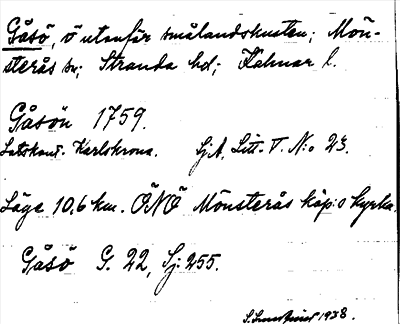 Gåsö, ö utanför smålandskusten; Mön-
sterås sn; Stranda hd; Kalmar l.
Gåsön 1759.
Lotskont. Karlskrona. Sj.A. Litt. T. N:o 23.
Läge 10,6 km. ÖNÖ Mönsterås köp:s kyrka.
Gåsö G. 22, Sj: 255.
1938.